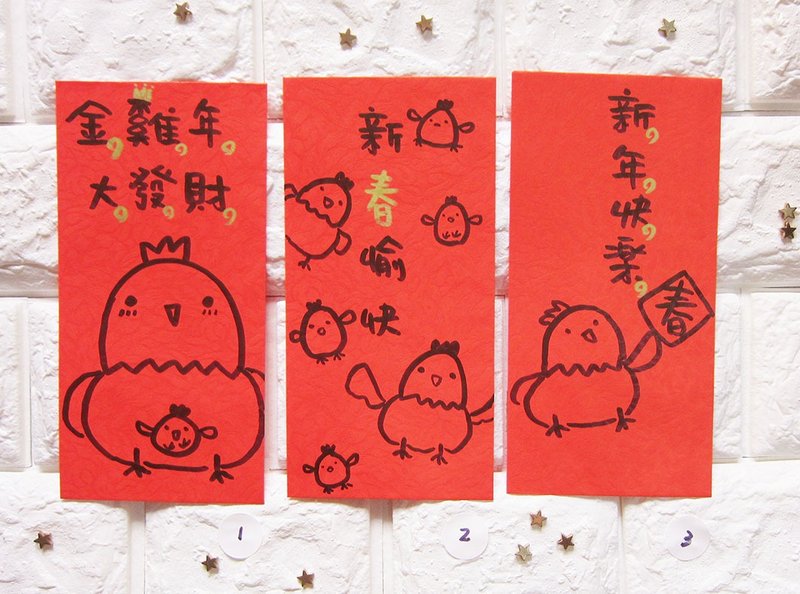 金雞年
大發財
新春愉快
新年快樂
春
1
2
3